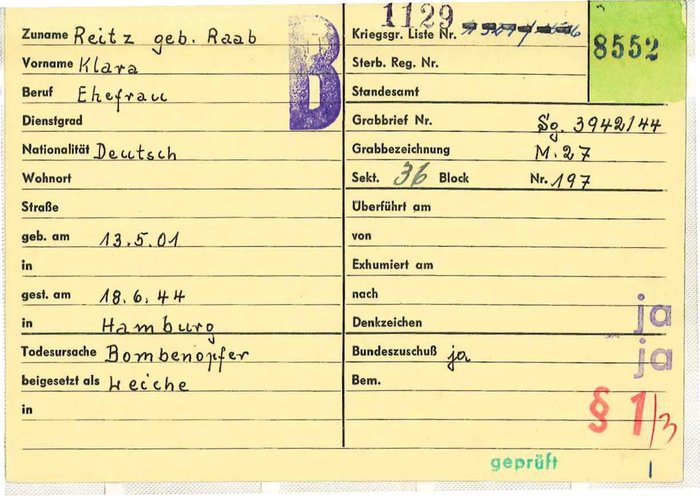 Zuname Reitz geb. Raab
Vorname Klara
Beruf Ehefrau
Dienstgrad
Nationalität Deutsch
Wohnort
Straße
geb. am 13.5.01
in
gest. am 18.6.44
in Hamburg
Todesursache Bombenopfer
beigesetzt als Leiche
in
B
1129
Kriegsgr. Liste Nr.
8552
Sterb. Reg. Nr.
Standesamt
Grabbrief Nr. Sg. 3942/44
Grabbezeichnung M.27
Sekt. 36 Block Nr. 197
Überführt am
von
Exhumiert am
nach
Denkzeichen ja
Bundeszuschuß ja ja
Bem.
§ 1/3
geprüft